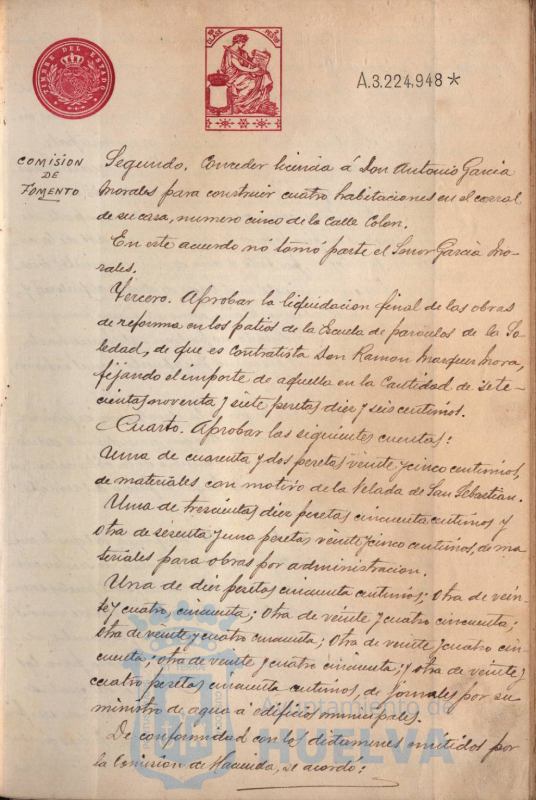 TIMBRE DEL ESTADO
A.3.224.948*
COMISION
DE
FOMENTO
Segundo. Conceder licencia á Don Antonio Garcia
Morales para construir cuatro habitaciones en el corral
de su casa, numero cinco de la Calle Colon.
En este acuerdo nó tomó parte el Señor Garcia Mo-
rales.
Tercero. Aprobar la liquidacion final de las obras
de reforma en los patios de la Escuela de parvulos de la So-
ledad, de que es Contratista Don Ramon Marquez Mora,
fijando el importe de aquella en la Cantidad de sete-
cientas noventa y siete pesetas diez y seis centimos.
Cuarto. Aprobar las siguientes cuentas:
Una de cuarenta y dos pesetas veinte y cinco centimos,
de materiales con motivo de la Velada de San Sebastian.
Una de trescientas diez pesetas cincuenta centimos y
otra de sesenta y una pesetas veinte y cinco centimos, de ma-
teriales para obras por administracion.
Una de diez pesetas cincuenta centimos; otra de vein-
te y cuatro, cincuenta; otra de veinte y cuatro cincuenta;
otra de veinte y cuatro cincuenta; otra de veinte y cuatro cin-
cuenta; otra de veinte y cuatro cincuenta; y otra de veinte y
cuatro pesetas cincuenta centimos, de jornales por su
ministro de agua á edificios municipales.
De conformidad con los dictamenes emitidos por
la Comision de Hacienda, se acordó:
Ayuntamiento de
HUELVA